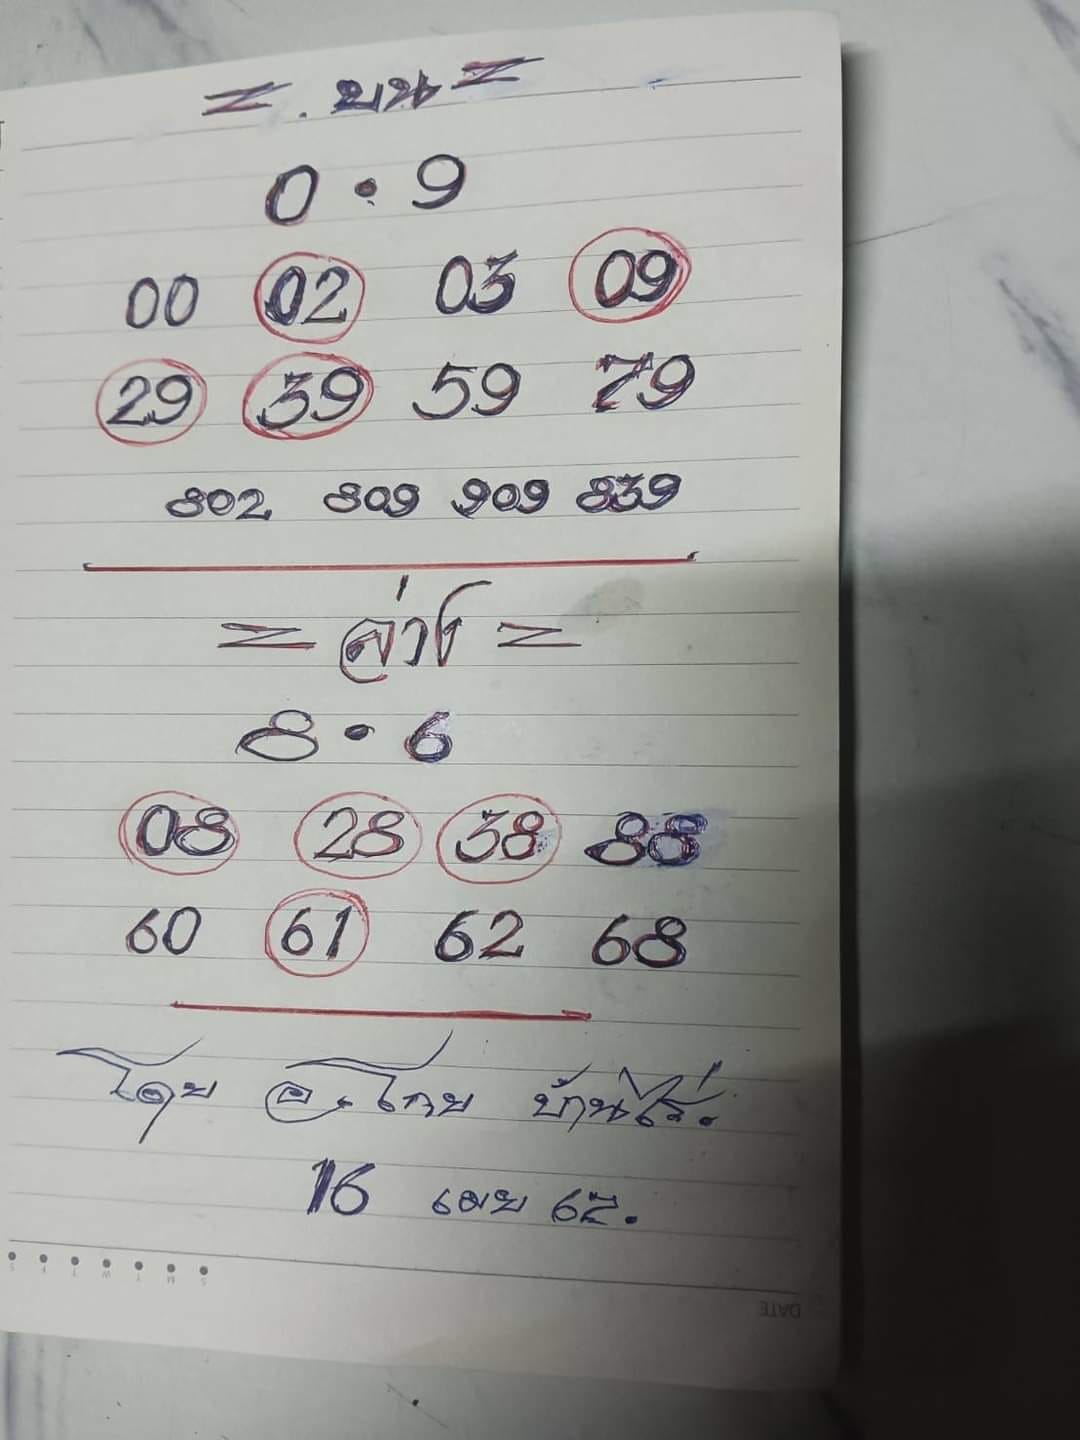 = . บน =
0 • 9
00 02 03 09
29 39 59 79
802 809 909 839
= ล่าง =
8 • 6
08 28 38 88
60 61 62 68
โดย อ. โกย บ้านไร่.
16 เมย 65.
S M T W T F S
DATE